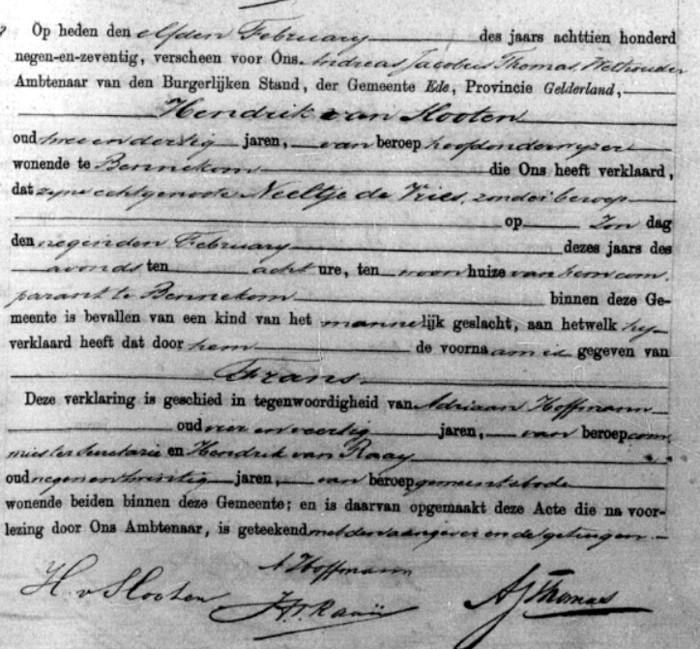 Op heden den elfden February des jaars achttien honderd
negen-en-zeventig, verscheen voor Ons. Andreas Jacobus Thomas, Wethouder
Ambtenaar van den Burgerlijken Stand, der Gemeente Ede, Provincie Gelderland,
Hendrik van Slooten
oud twee en dertig jaren, van beroep hoofdonderwijzer
wonende te Bennekom die Ons heeft verklaard,
dat zyne echtgenoote Neeltje de Vries, zonder beroep
op Zon dag
den negenden February dezes jaars des
avonds ten acht ure, ten woon huize van hem com
parant te Bennekom binnen deze Ge-
meente is bevallen van een kind van het mannelijk geslacht, aan hetwelk hy
verklaard heeft dat door hem de voornaam is gegeven van
Frans.
Deze verklaring is geschied in tegenwoordigheid van Adriaan Hoffmann
oud vier en veertig jaren, van beroep com
mies ter Secretarie en Hendrik van Raay
oud negen en twintig jaren, van beroep gemeentebode
wonende beiden binnen deze Gemeente; en is daarvan opgemaakt deze Acte die na voor-
lezing door Ons Ambtenaar, is geteekend met den aangever en de getuigen.
A Hoffmann
H v Slooten
AJ Thomas